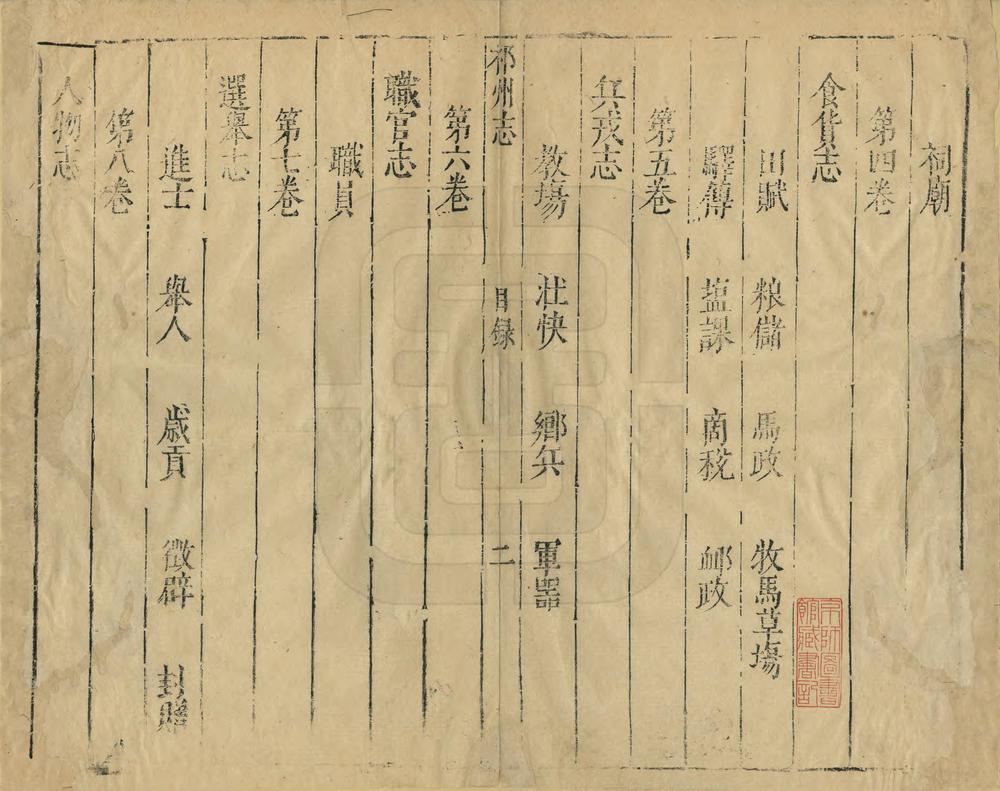 祠廟
第四卷
食貨志
田賦 粮儲 馬政 牧馬草塲
驛傳 塩課 商稅 郵政
第五卷
兵戎志
教塲 壮快 鄉兵 軍器
祁州志 目録 二
第六卷
職官志
職員
第七卷
選舉志
進士 舉人 歲貢 徵辟 封贈
第八卷
人物志
京師圖書館藏書記